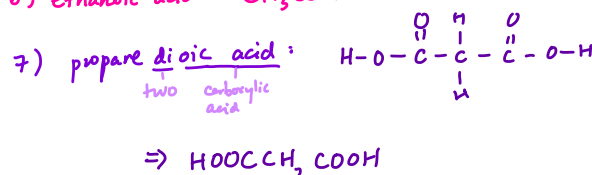 6) ethanoic acid
7) propane dioic acid :
two carboxylic acid
O H O
H-O-C-C-C-O-H
H
⇒ HOOCCH₂COOH